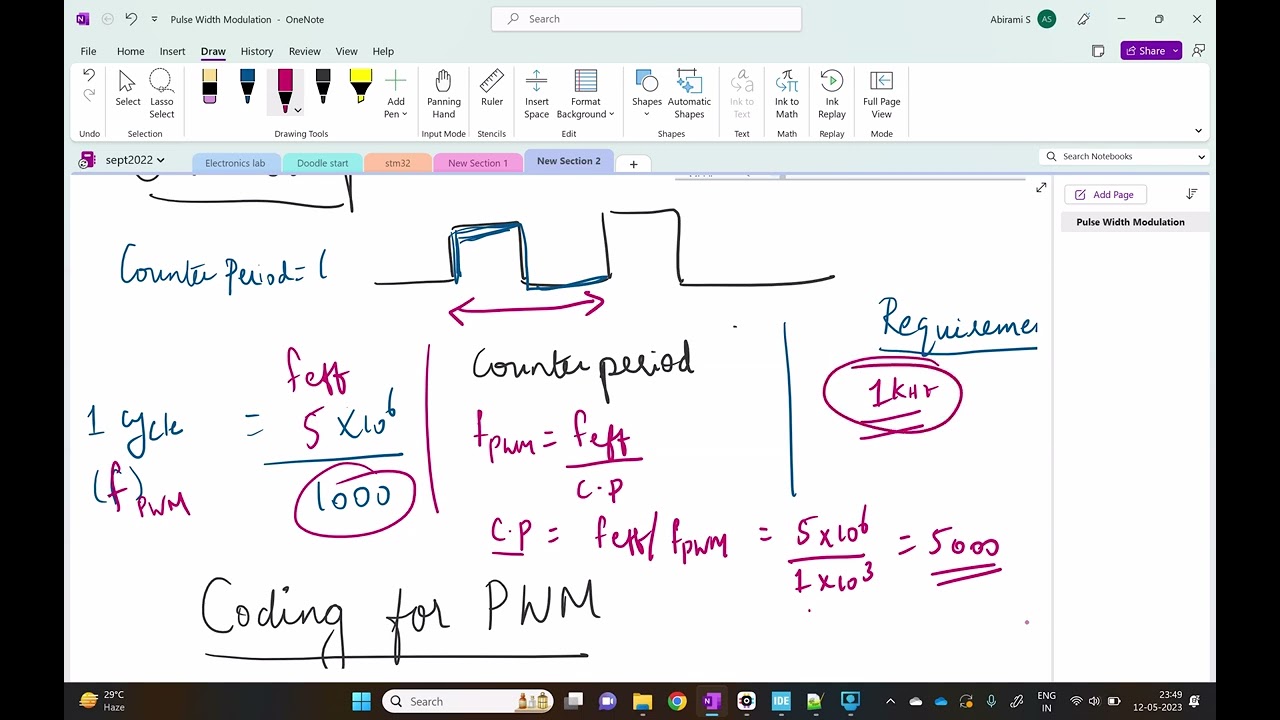 Pulse Width Modulation - OneNote
Search
Abirami S
AS
File Home Insert Draw History Review View Help
Share
Select
Lasso Select
Add Pen
Panning Hand
Ruler
Insert Space
Format Background
Shapes
Automatic Shapes
Ink to Text
Ink to Math
Ink Replay
Full Page View
Undo Selection Drawing Tools Input Mode Stencils Edit Shapes Text Math Replay Mode
sept2022
Electronics lab
Doodle start
stm32
New Section 1
New Section 2
Search Notebooks
Add Page
Pulse Width Modulation
Counter Period = (
Requiremen
1 KHz
1 cycle (f)PWM = feff 5 x10^6 / 1000
Counter period
fPWM = feff / C.P
C.P = feff / fPWM = 5x10^6 / 1x10^3 = 5000
Coding for PWM
29°C
Haze
Search
IDE
ENG
IN
23:49
12-05-2023